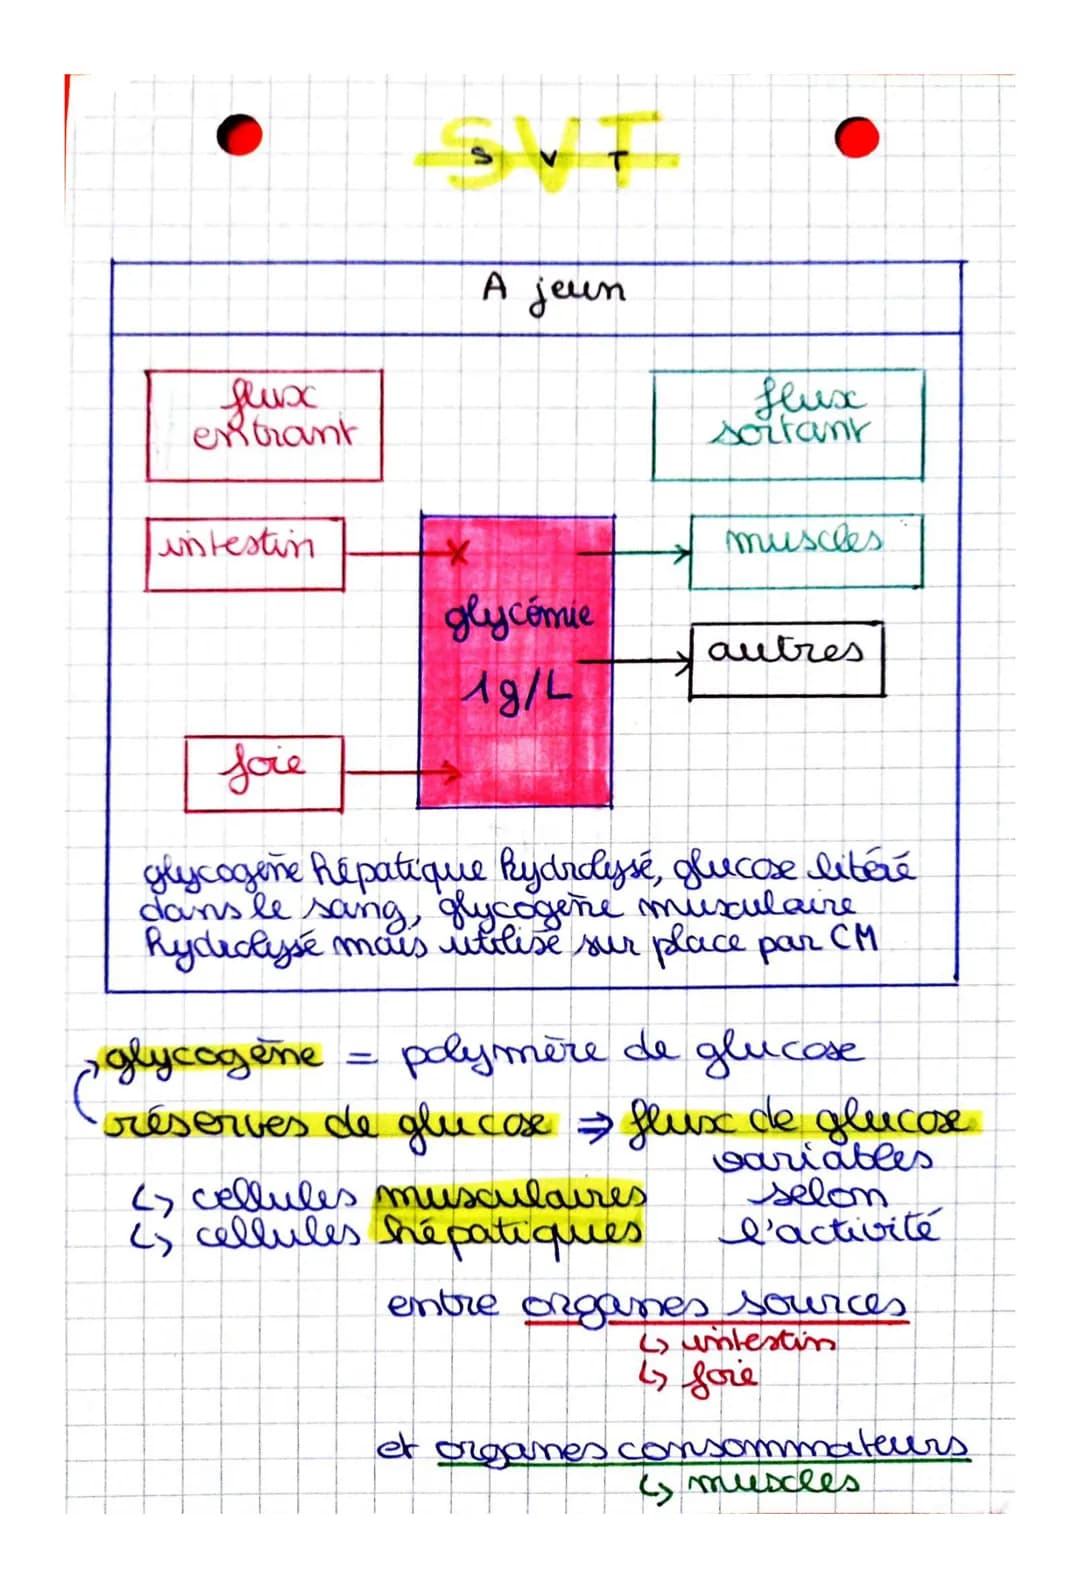 SVT
A jeun
flux
entrant
flux
sortant
intestin
muscles
glycémie
1g/L
autres
foie
glycogène hépatique hydrolysé, glucose libéré
dans le sang, glycogène musculaire
hydrolysé mais utilisé sur place par CM
glycogène = polymère de glucose
réserves de glucose ⇒ flux de glucose
variables
↳ cellules musculaires selon
↳ cellules hépatiques l'activité
entre organes sources
↳ intestin
↳ foie
et organes consommateurs
↳ muscles